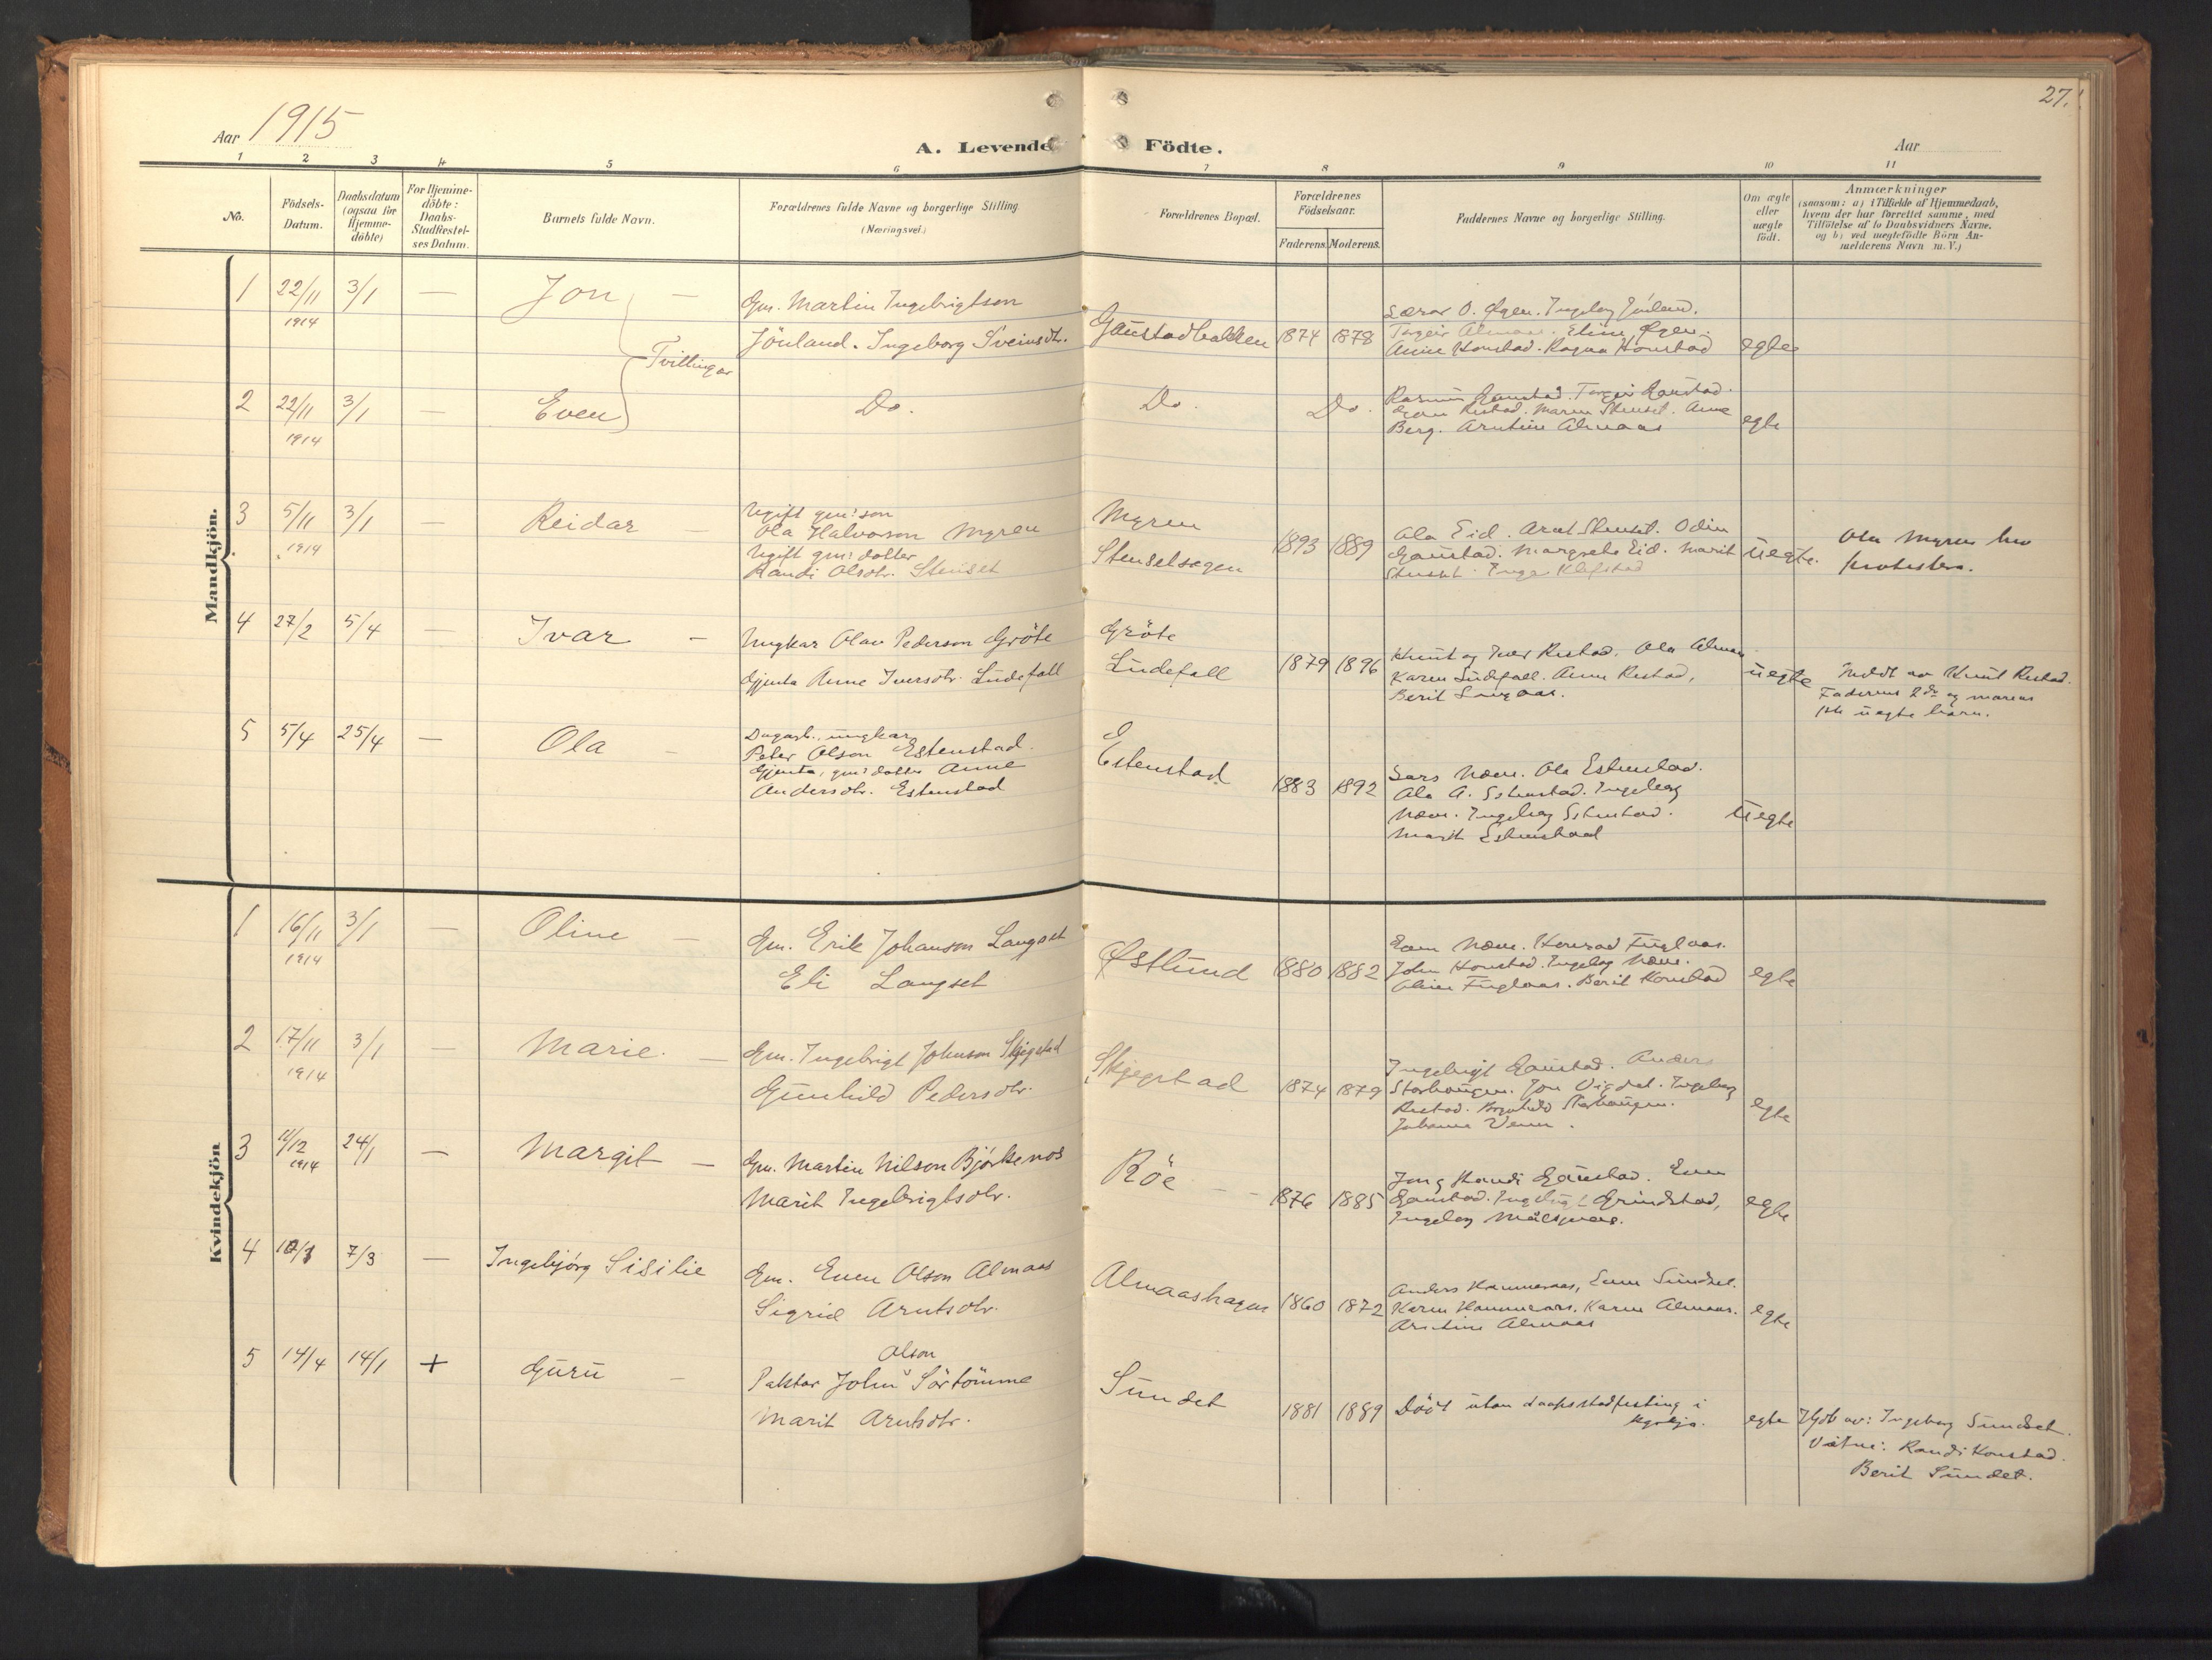 Aar 1915
A. Levende Födte.
Aar
27.
1 2 3 4 5 6 7 8 9 10 11
No.
Födsels-
Datum.
Daabsdatum
(ogsaa for
Hjemme-
döbte)
For Hjemme-
döbte:
Daabs-
Stadfæstel-
ses Datum.
Barnets fulde Navn.
Forældrenes fulde Navne og borgerlige Stilling.
(Næringsvei.)
Forældrenes Bopæl.
Forældrenes
Födselsaar.
Faderens. Moderens.
Faddernes Navne og borgerlige Stilling.
Om ægte
eller
uægte
födt.
Anmærkninger
(saasom: a) i Tilfælde af Hjemmedaab,
hvem der har forrettet samme, med
Tilföielse af to Daabsvidners Navne.
og b) ved uægtefödte Börn An-
melderens Navn m. V.)
Mandkjön.
1 22/11 1914 3/1 — Jon —
Gm. Martin Ingebrigtson
Jönland. Ingeborg Sveinsdtr.
Gaustadbakken 1874 1878
Lærar O. Øgen. Ingeborg Jönland.
Torgeir Almaas. Eline Øgen.
Anne Honstad. Ragna Honstad
egte
Tvillingar
2 22/11 1914 3/1 — Even
Do. Do. Do.
Rasmus Gaustad. Torgeir Gaustad.
Restad. Maren Stenset. Anne
Berg. Arntine Almaas
egte
3 5/11 1914 3/1 — Reidar —
Ugift gm:son
Ola Halvorson Myren
Ugift gm:dotter
Randi Olsdtr. Stenset
Myren
Stensetsegen
1893 1889
Ola Eid. Arnt Stenset. Odin
Gaustad. Margrete Eid. Marit
Stenset. Inga Klefstad
uegte.
Ola Myren hev
protestera.
4 27/2 5/4 — Ivar —
Ungkar Olav Pederson Gröte
Gjenta Anne Iversdtr. Lüdefall
Gröte
Lüdefall
1879 1896
Knut og Iver Restad. Ola Almaas
Karen Lüdefall. Anne Restad,
Berit
uegte
Meldt av Knut Restad.
Faderens 2det og morens
1ste uegte barn.
5 5/4 25/4 — Ola —
Dagarb., ungkar
Peter Olson Estenstad.
Gjenta, gm:dotter Anne
Andersdtr. Estenstad
Estenstad
1883 1892
Lars Moen. Ola Estenstad.
Ola A. Estenstad. Ingeborg
Moen. Ingeborg Estenstad.
Marit Estenstad
uegte
Kvindekjön
1 16/11 1914 3/1 — Oline —
Gm. Erik Johanson Langset
Eli Langset
Østlund 1880 1882
Moen. Konrad Fuglaas.
John Honstad. Ingeborg Moen.
Oline Fuglaas. Berit Honstad
egte
2 17/11 1914 3/1 — Marie. —
Gm. Ingebrigt Johnson Skjegstad
Gunhild Pedersdtr.
Skjegstad 1874 1879
Ingebrigt Gaustad. Anders
Storhaugen. Jon Vigdal. Ingeborg
Restad. Storhaugen.
Johanna Venn.
egte
3 11/12 1914 24/1 — Margit —
Gm. Martin Nilson Bjørkenos
Marit Ingebrigtsdtr.
Röe 1876 1885
Jon og Randi Gaustad. Even
Gaustad. Ingebrigt Grindstad,
Ingeborg
egte
4 7/3 — Ingebjørg Sisilie
Gm. Even Olson Almaas
Sigrid Arntsdtr.
Almaashagen 1860 1872
Anders Hammeraas, Even Sundset.
Karen Hammeraas. Karen Almaas.
Arntine Almaas
egte
5 14/4 14/1 + Guru —
Paktar John Olson Sörtömme
Marit Arntsdtr.
Sundet
1881 1889
Död utan daapsstadfesting i
kyrkja.
egte
Hjdb av: Ingeborg Sundset.
Vitne: Randi Honstad.
Berit Sundet.